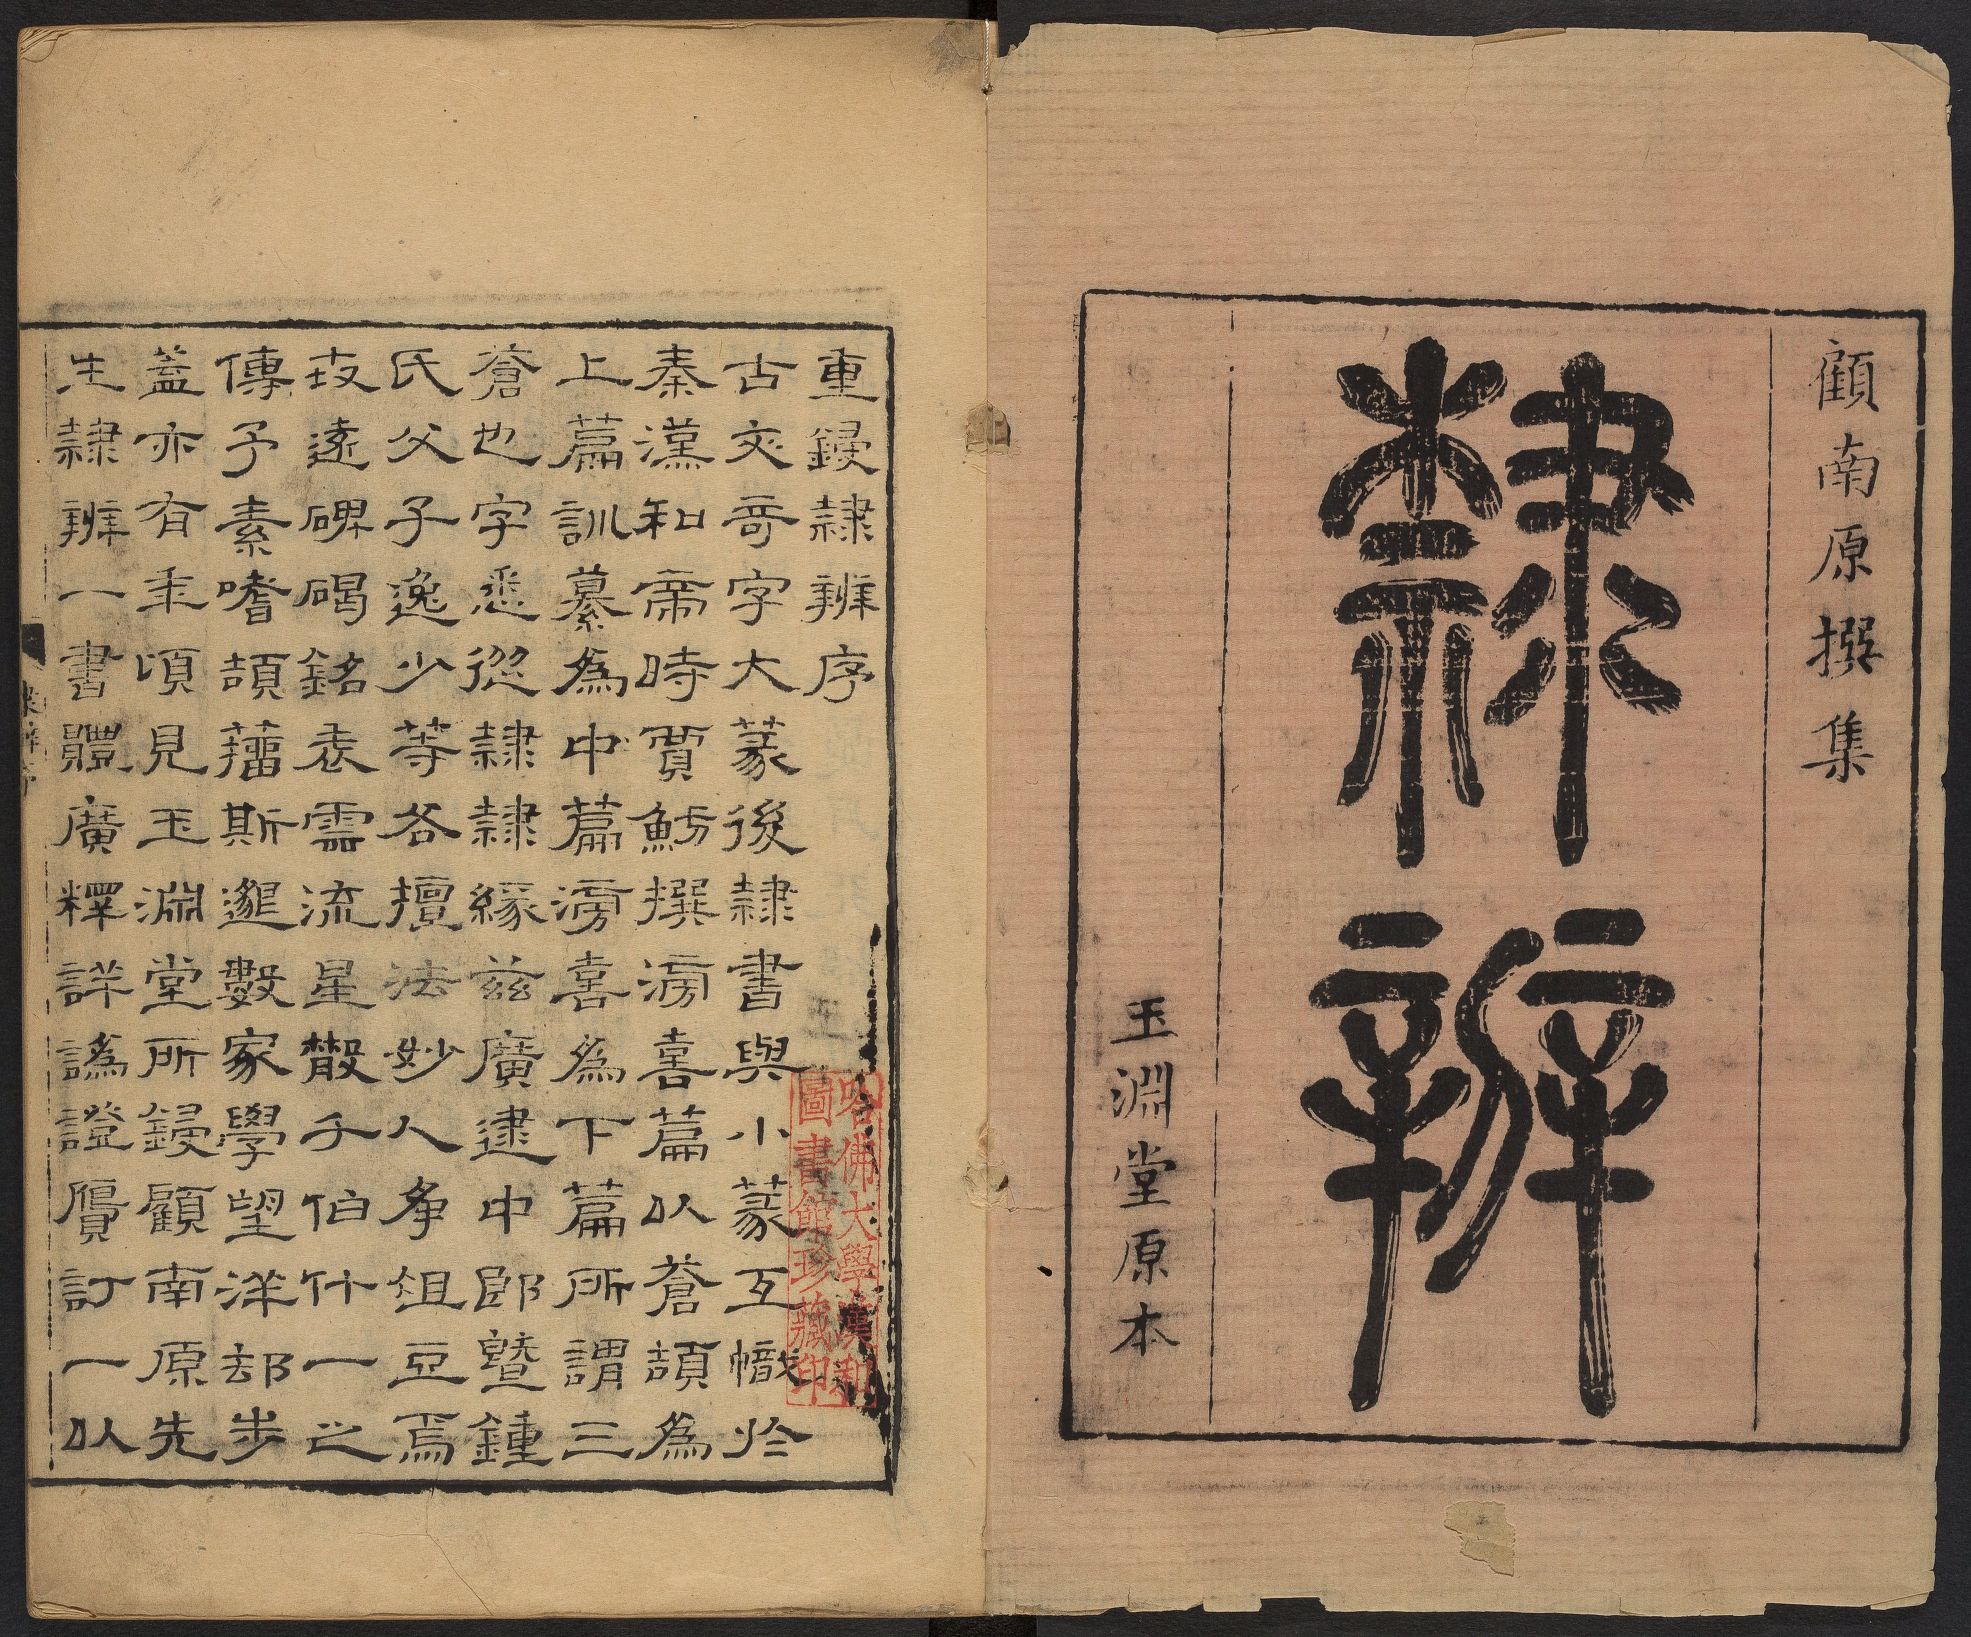 顧南原撰集
隸辨
玉淵堂原本
重鋟隸辨序
古文奇字大篆後隸書與小篆互幟於
秦漢和帝時賈魴撰滂喜篇以蒼頡為
上篇訓纂為中篇滂喜為下篇所謂三
蒼也字悉從隸隸緣茲廣逮中郎暨鍾
氏父子逸少等各擅法妙人爭俎豆焉
攱遠碑碣銘表雲流星散千伯什一之
傳予素嗜頡籀斯邈數家學望洋却步
蓋亦有年頃見玉淵堂所鋟顧南原先
生隸辨一書體廣釋詳譌證贗訂一以
哈佛大學漢和
圖書館珍藏印